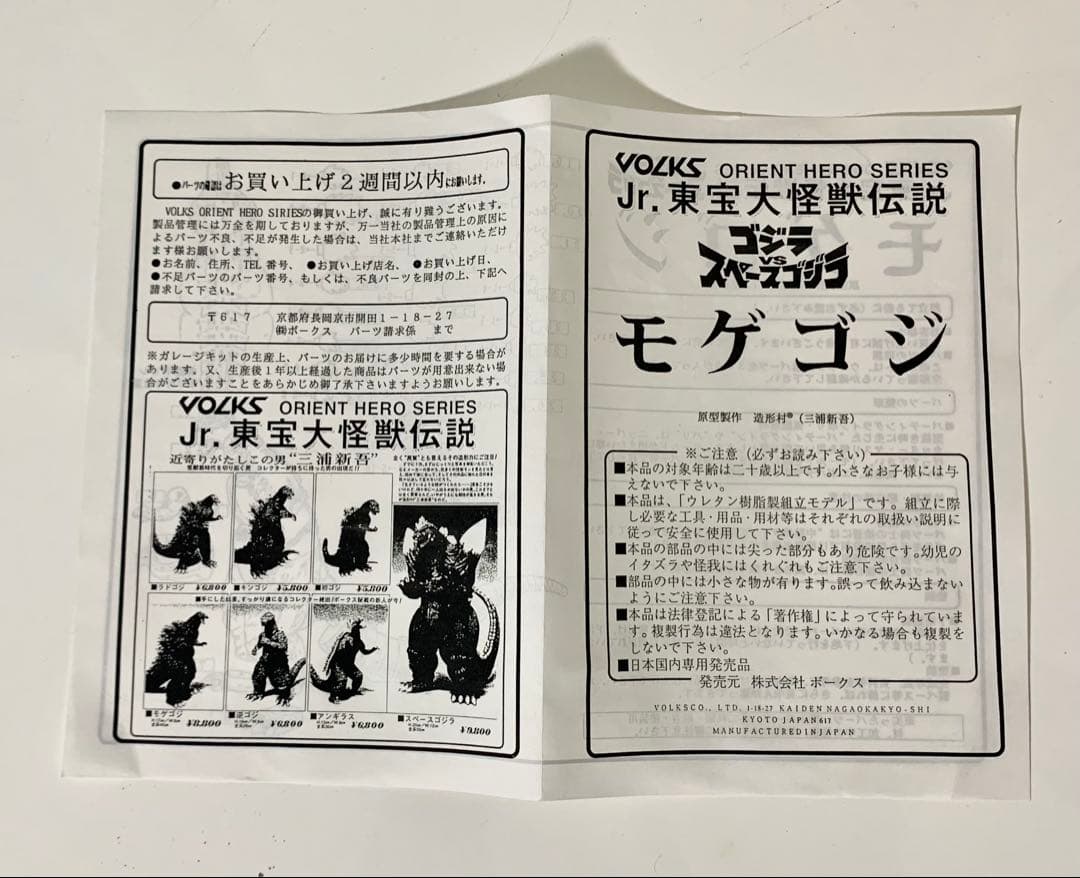 ●パーツの確認はお買い上げ2週間以内にお願いします。
VOLKS ORIENT HERO SIRIESの御買い上げ、誠に有り難うございます。
製品管理には万全を期しておりますが、万一当社の製品管理上の原因に
よるパーツ不良、不足が発生した場合は、当社本社までご連絡いただけ
ます様お願いします。
●お名前、住所、TEL 番号、 ●お買い上げ店名、 ●お買い上げ日、
●不足パーツのパーツ番号、もしくは、不良パーツを同封の上、下記へ
請求して下さい。
〒617 京都府長岡京市開田1－18－27
㈱ボークス パーツ請求係 まで
※ガレージキットの生産上、パーツのお届けに多少時間を要する場合が
あります。又、生産後1年以上経過した商品はパーツが用意出来ない場
合がございますことをあらかじめ御了承下さいますようお願いします。
VOLKS ORIENT HERO SERIES
Jr.東宝大怪獣伝説
近寄りがたしこの男“三浦新吾”
■ラドゴジ ¥6,800
■キンゴジ ¥5,800
■初ゴジ ¥5,800
■モゲゴジ ¥8,800
■逆ゴジ ¥6,800
■アンギラス ¥6,800
■スペースゴジラ ¥9,800
VOLKS ORIENT HERO SERIES
Jr.東宝大怪獣伝説
ゴジラ
VS
スペースゴジラ
モゲゴジ
原型製作 造形村®（三浦新吾）
※ご注意（必ずお読み下さい）
■本品の対象年齢は二十歳以上です。小さなお子様には与
えないで下さい。
■本品は、「ウレタン樹脂製組立モデル」です。組立に際
し必要な工具・用品・用材等はそれぞれの取扱い説明に
従って安全に使用して下さい。
■本品の部品の中には尖った部分もあり危険です。幼児の
イタズラや怪我にはくれぐれもご注意下さい。
■部品の中には小さな物が有ります。誤って飲み込まない
ようにご注意下さい。
■本品は法律登記による「著作権」によって守られていま
す。複製行為は違法となります。いかなる場合も複製を
しないで下さい。
■日本国内専用発売品
発売元 株式会社 ボークス
VOLKSCO., LTD. 1-18-27 KAIDEN NAGAOKAKYO-SHI
KYOTO JAPAN 617
MANUFACTURED IN JAPAN